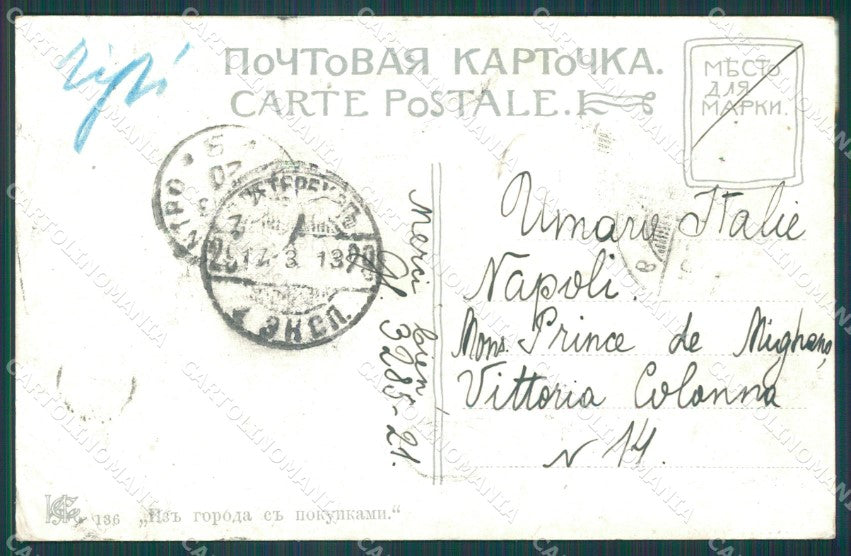 ПОЧТОВАЯ КАРТОЧКА.
CARTE POSTALE.
МѢСТО
ДЛЯ
МАРКИ.
Italie
Napoli.
Mons. Prince de
Vittoria Colonna
N 14.
Merci bien
N. 3285-21.
17-3 13
ЭКСП.
136 „Изъ города съ покупками.“
CARTOLINOMANIA